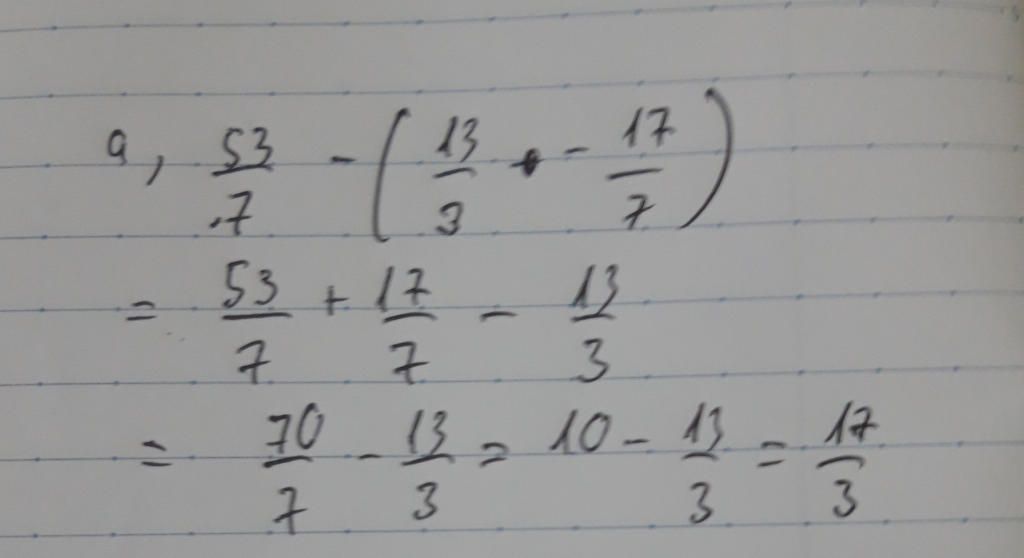 a, 53/7 - (13/3 - 17/7)
= 53/7 + 17/7 - 13/3
= 70/7 - 13/3 = 10 - 13/3 = 17/3